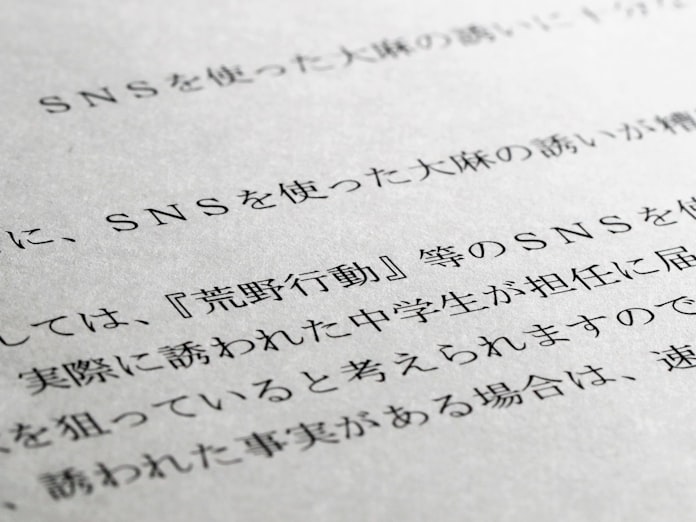 ＳＮＳを使った大麻の誘いに十分な
に、ＳＮＳを使った大麻の誘いが
しては、『荒野行動』等のＳＮＳを使
実際に誘われた中学生が担任に届
を狙っていると考えられますので
、誘われた事実がある場合は、速